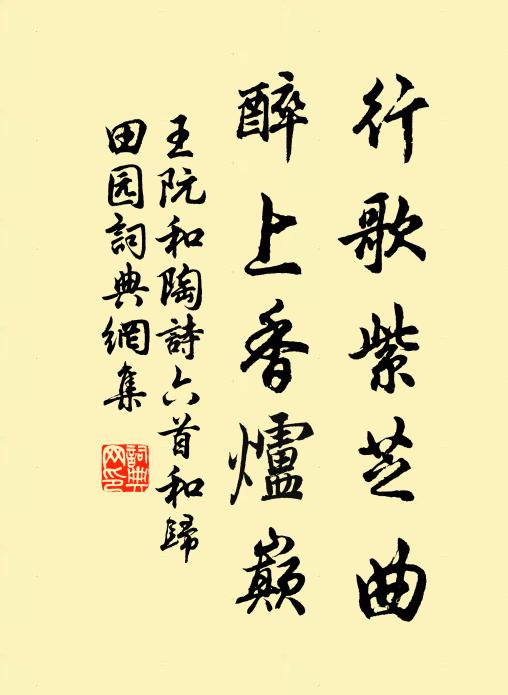 行歌紫芝曲
醉上香爐巔
王阮和陶詩六首和歸
田园詞典網集
詞典
网印